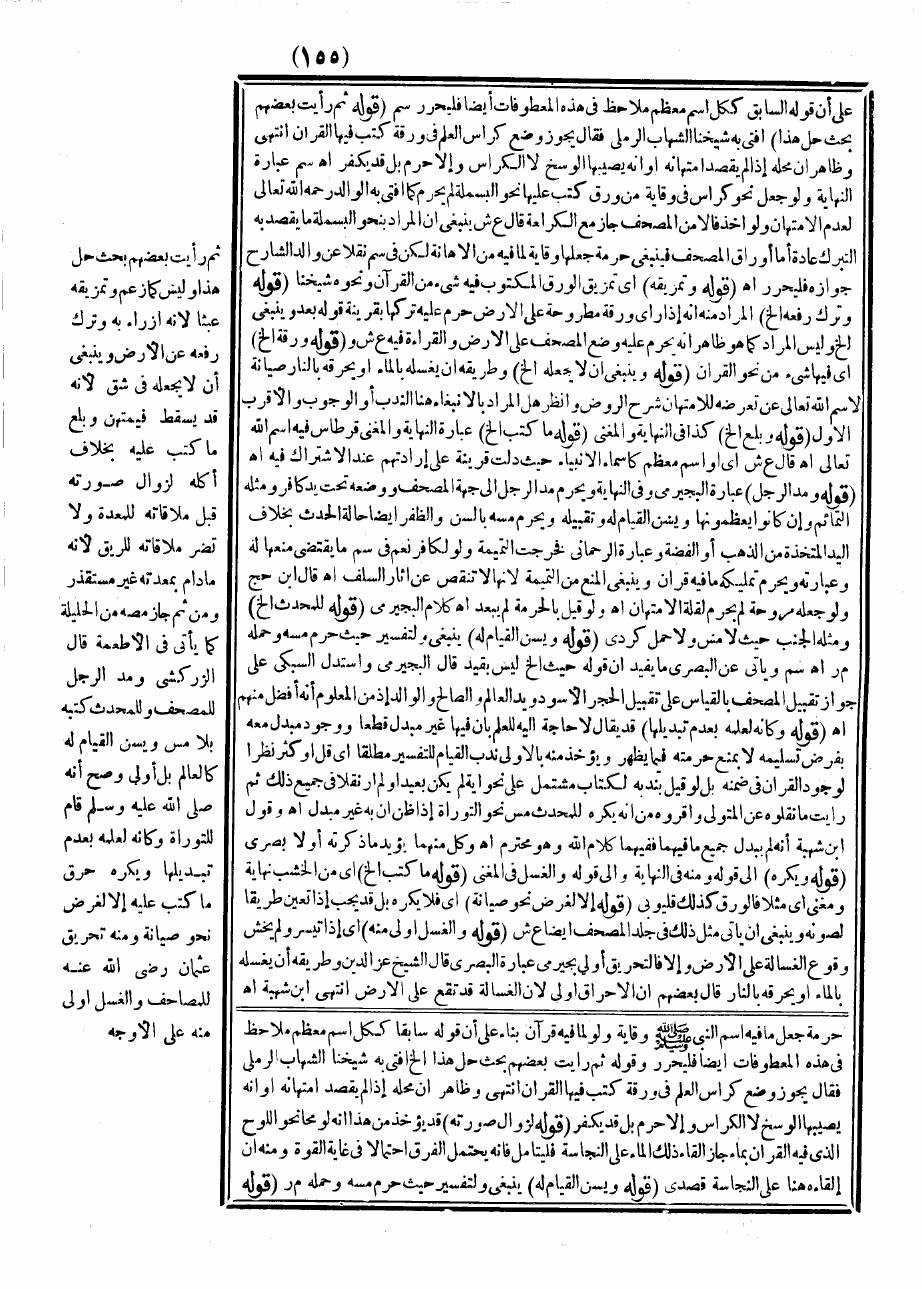 (١٥٥)
على أن قوله السابق ككل اسم معظم ملاحظ فى هذه المعطوفات أيضا فليحرر سم (قوله ثم رأيت بعضهم
بحث حل هذا) افتى به شيخنا الشهاب الرملى فقال يجوز وضع كراس العلم فى ورقة كتب فيها القرآن انتهى
وظاهر ان محله إذا لم يقصد امتهانه او انه يصيبها الوسخ لا الكراس وإلا حرم بل قد يكفر اه سم عبارة
النهاية ولو جعل نحو كراس فى وقاية من ورق كتب عليها نحو البسملة لم يحرم كما افتى به الوالد رحمه الله تعالى
لعدم الامتهان ولو اخذ فالا من المصحف جاز مع الكراهة قال ع ش ينبغى ان المراد بنحو البسملة ما يقصد به
التبرك عادة أما أوراق المصحف فينبغى حرمة جعلها وقاية لما فيه من الاهانة لكن فى سم نقلا عن والد الشارح
جوازه فليحرر اه (قوله وتمزيقه) اى تمزيق الورق المكتوب فيه شىء من القرآن ونحوه شيخنا (قوله
وترك رفعه الخ) المراد منه انه إذا رأى ورقة مطروحة على الارض حرم عليه تركها بقرينة قوله بعد وينبغى
الخ وليس المراد كما هو ظاهر انه يحرم عليه وضع المصحف على الارض والقراءة فيه ع ش و (قوله ورقة الخ)
اى فيها شىء من نحو القرآن (قوله وينبغى ان لا يجعله الخ) وطريقه ان يغسله بالماء او يحرقه بالنار صيانة
لاسم الله تعالى عن تعرضه للامتهان شرح الروض وانظر هل المراد بالانبغاء هنا الندب أو الوجوب والاقرب
الاول (قوله وبلع الخ) كذا فى النهاية والمغنى (قوله ما كتب الخ) عبارة النهاية والمغنى قرطاس فيه اسم الله
تعالى اه قال ع ش اى او اسم معظم كاسماء الانبياء حيث دلت قرينة على إرادتهم عند الاشتراك فيه اه
(قوله ومد الرجل) عبارة البجيرمى وفى النهاية ويحرم مد الرجل الى جهة المصحف ووضعه تحت يد كافر ومثله
التمائم وإن كانوا يعظمونها ويسن القيام له وتقبيله ويحرم مسه بالسن والظفر ايضا حالة الحدث بخلاف
اليد المتخذة من الذهب أو الفضة وعبارة الرحمانى فخرجت التميمة ولو لكافر نعم فى سم ما يقتضى منعها له
وعبارته ويحرم تمليكه ما فيه قرآن وينبغى المنع من التميمة لانها لا تنقص عن اثار السلف اه قال ابن حج
ولو جعله مروحة لم يحرم لقلة الامتهان اه ولو قيل بالحرمة لم يبعد اه كلام البجيرمى (قوله للمحدث الخ)
ومثله الجنب حيث لا مس ولا حمل كردى (قوله ويسن القيام له) ينبغى ولتفسير حيث حرم مسه وحمله
م ر اه سم ويأتى عن البصرى ما يفيد ان قوله حيث الخ ليس بقيد قال البجيرمى واستدل السبكى على
جواز تقبيل المصحف بالقياس على تقبيل الحجر الاسود ويد العالم والصالح والوالد إذ من المعلوم أنه أفضل منهم
اه (قوله وكانه لعلمه بعدم تبديلها) قد يقال لا حاجة اليه للعلم بأن فيها غير مبدل قطعا ووجود مبدل معه
بفرض تسليمه لا يمنع حرمته فيما يظهر ويؤخذ منه بالاولى ندب القيام للتفسير مطلقا اى قل او كثر نظرا
لوجود القرآن فى ضمنه بل لو قيل بندبه لكتاب مشتمل على نحو اية لم يكن بعيدا ولم ار نقلا فى جميع ذلك ثم
رايت ما نقلوه عن المتولى واقروه من انه يكره للمحدث مس نحو التوراة إذا ظن ان به غير مبدل اه وقول
ابن شهبة أنه لم يبدل جميع ما فيهما ففيهما كلام الله وهو محترم اه وكل منهما يؤيد ما ذكرته أولا بصرى
(قوله ويكره) الى قوله ومنه فى النهاية والى قوله والغسل فى المغنى (قوله ما كتب الخ) اى من الخشب نهاية
ومغنى اى مثلا فالورق كذلك قليوبى (قوله إلا لغرض نحو صيانة) اى فلا يكره بل قد يجب إذا تعين طريقا
لصونه وينبغى ان يأتى مثل ذلك فى جلد المصحف ايضا ع ش (قوله والغسل اولى منه) اى إذا تيسر ولم يخش
وقوع الغسالة على الارض وإلا فالتحريق أولى بجيرمى عبارة البصرى قال الشيخ عز الدين وطريقه أن يغسله
بالماء او يحرقه بالنار قال بعضهم ان الاحراق اولى لان الغسالة قد تقع على الارض انتهى ابن شهبة اه
حرمة جعل ما فيه اسم النبى ﷺ وقاية ولو لما فيه قرآن بناء على أن قوله سابقا ككل اسم معظم ملاحظ
فى هذه المعطوفات ايضا فليحرر وقوله ثم رايت بعضهم بحث حل هذا الخ افتى به شيخنا الشهاب الرملى
فقال يجوز وضع كراس العلم فى ورقة كتب فيها القرآن انتهى وظاهر ان محله إذا لم يقصد امتهانه او انه
يصيبها الوسخ لا الكراس وإلا حرم بل قد يكفر (قوله لزوال صورته) قد يؤخذ من هذا انه لو محا نحو اللوح
الذى فيه القرآن بماء جاز القاء ذلك الماء على النجاسة فليتامل فانه يحتمل الفرق احتمالا فى غاية القوة ومنه ان
القاءه هنا على النجاسة قصدى (قوله ويسن القيام له) ينبغى ولتفسير حيث حرم مسه وحمله م ر (قوله
ثم رأيت بعضهم بحث حل
هذا وليس كما زعم وتمزيقه
عبثا لانه ازراء به وترك
رفعه عن الارض وينبغى
أن لا يجعله فى شق لانه
قد يسقط فيمتهن وبلع
ما كتب عليه بخلاف
أكله لزوال صورته
قبل ملاقاته للمعدة ولا
تضر ملاقاته للريق لانه
مادام بمعدته غير مستقذر
ومن ثم جاز مصه من الحليلة
كما يأتى فى الاطعمة قال
الزركشى ومد الرجل
للمصحف وللمحدث كتبه
بلا مس ويسن القيام له
كالعالم بل أولى وصح أنه
صلى الله عليه وسلم قام
للتوراة وكانه لعلمه بعدم
تبديلها ويكره حرق
ما كتب عليه إلا لغرض
نحو صيانة ومنه تحريق
عثمان رضى الله عنه
للمصاحف والغسل اولى
منه على الاوجه